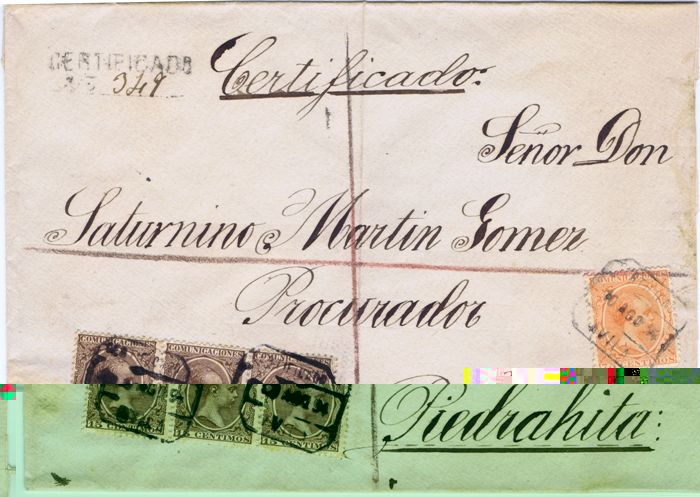 CERTIFICADO
349
Certificado:
Señor Don
Saturnino Martin Gomez
Procurador
COMUNICACIONES
COMUNICACIONES COMUNICACIONES COMUNICACIONES
15 CENTIMOS 15 CENTIMOS 15 CENTIMOS
Piedrahita: